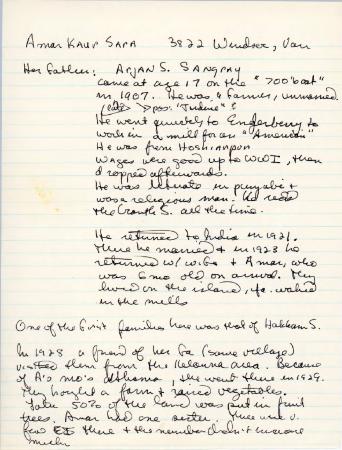 Amar KAUR SARA 3822 Windsor, Van
Her father: ARJAN S. SANGRAY
came at age 17 on the "700 boat"
in 1907. He was a farmer, unmarried
He went quietly to Enderberry to
work in a mill for an "American"
He was from Hoshiarpur
Wages were good up to WWI, then
dropped afterwards.
He was literate in punjabi +
was a religious man. He read
the Granth S. all the time.
He returned to India in 1921.
There he married + in 1923 he
returned w/ wife + Amar, who
was 6 mo old on arrival. They
lived on the island, fa. worked
in the mills
One of the first families here was that of Hakkam S.
In 1928 a friend of her fa (same village)
visited them from the Kelowna area. Because
of A's mo's asthma, they went there in 1929.
They bought a farm + raised vegetables.
Later 50% of the land was put in fruit
trees. Amar had one sister. There were v.
few EI there + the number didn't increase
much.